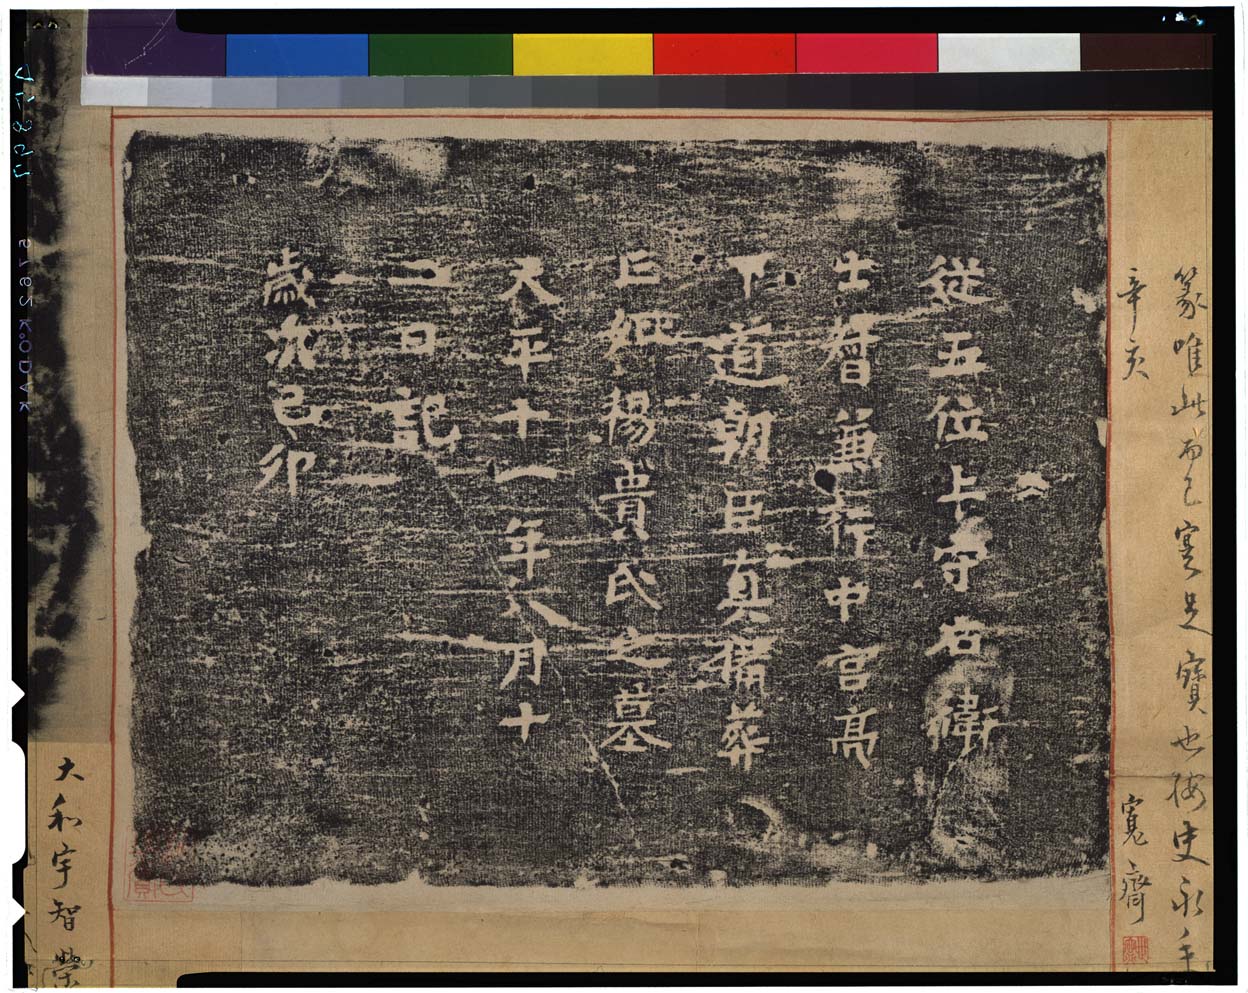 篆唯此而已寔足寶也按史永手
辛亥
寛齋
從五位上守右衛
士督兼行中宮亮
下道朝臣真備葬
亡妣楊貴氏之墓
天平十一年八月十
二日記
歳次己卯
大和宇智榮
5762 KODAK